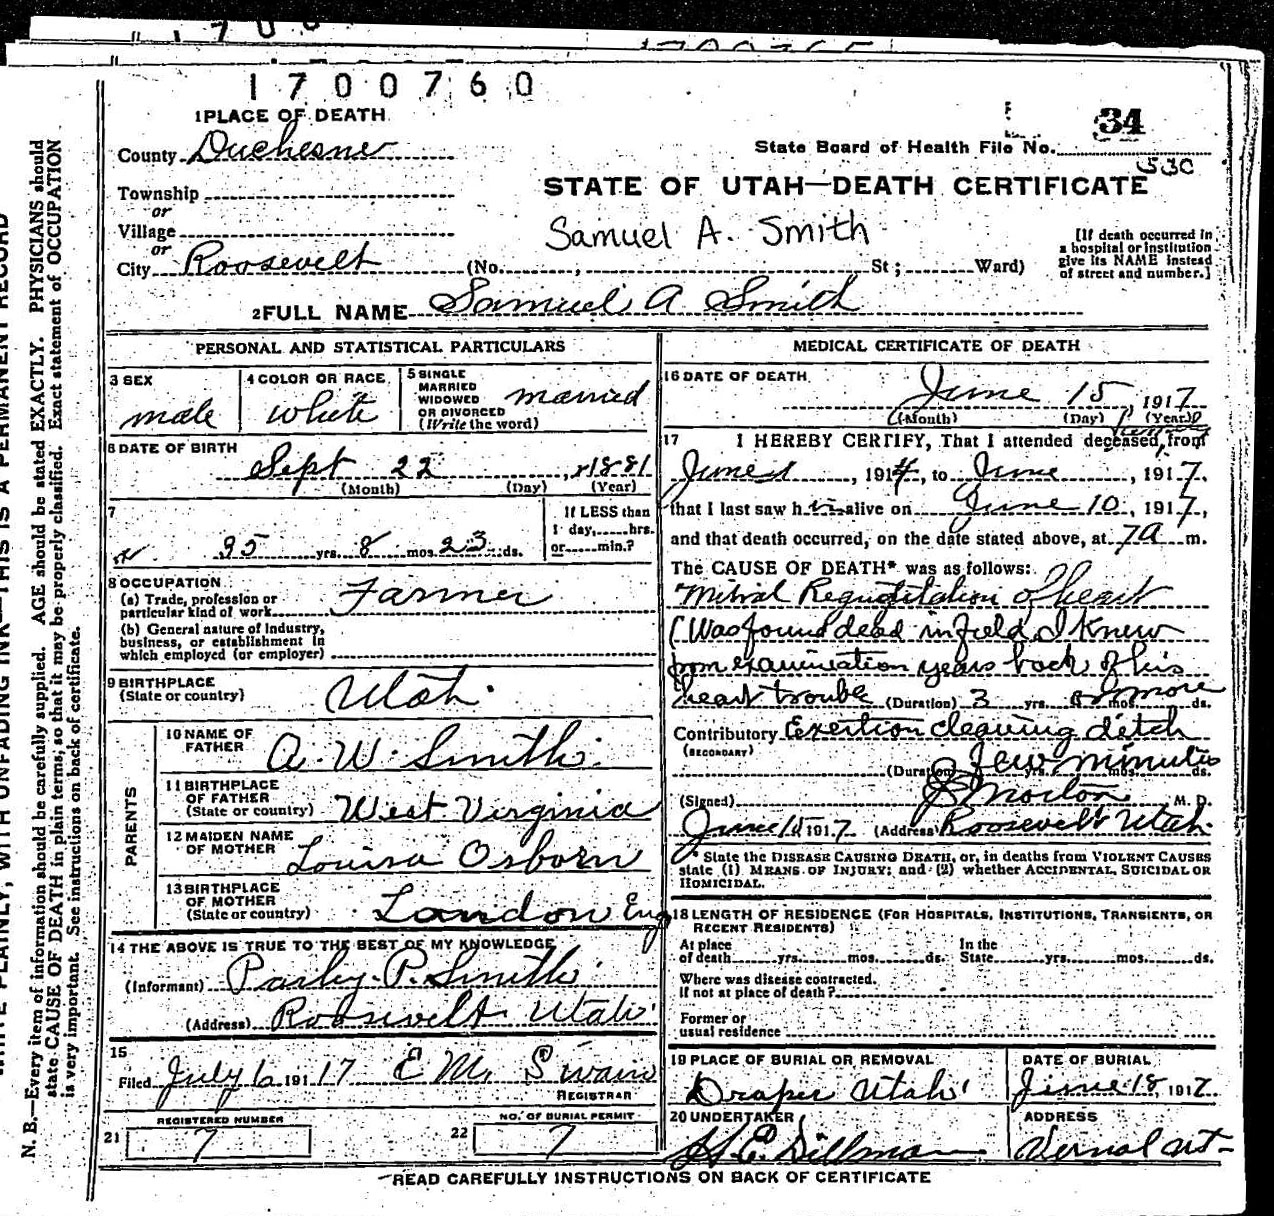 1700760
1 PLACE OF DEARTH
County Duchesne
State Board of Health File No. 34
530
Township
or
STATE OF UTAH—DEATH CERTIFICATE
Village
or
Samuel A. Smith
[If death occurred in
a hospital or institution
give its NAME instead
of street and number.]
City Roosevelt (No. , St; Ward)
2 FULL NAME Samuel A Smith
PERSONAL AND STATISTICAL PARTICULARS
3 SEX male
4 COLOR OR RACE white
5 SINGLE
MARRIED
WIDOWED
OR DIVORCED
(Write the word) married
6 DATE OF BIRTH
Sept 22, 1881
(Month) (Day) (Year)
7
35 yrs. 8 mos. 23 ds.
If LESS than
1 day, hrs.
or min.?
8 OCCUPATION
(a) Trade, profession or
particular kind of work Farmer
(b) General nature of Industry,
business, or establishment in
which employed (or employer)
9 BIRTHPLACE
(State or country) Utah.
PARENTS
10 NAME OF
FATHER A. W. Smith.
11 BIRTHPLACE
OF FATHER
(State or country) West Virginia
12 MAIDEN NAME
OF MOTHER Louisa Osborn
13 BIRTHPLACE
OF MOTHER
(State or country) London Eng
14 THE ABOVE IS TRUE TO THE BEST OF MY KNOWLEDGE
(Informant) Parley P. Smith
(Address) Roosevelt Utah
15
Filed July 6 191 17 E M. Swain
REGISTRAR
REGISTERED NUMBER
21 7
NO. OF BURIAL PERMIT
22 7
MEDICAL CERTIFICATE OF DEATH
16 DATE OF DEATH
June 15, 1917
(Month) (Day) (Year)
17 I HEREBY CERTIFY, That I attended deceased from
June 1, 1914, to June, 1917,
that I last saw him alive on June 10, 1917,
and that death occurred, on the date stated above, at 7a m.
The CAUSE OF DEATH* was as follows:
Mitral Regurtitation of heart
(Was found dead in field I knew
from examination years back of his
heart trouble (Duration) 3 yrs. or more mos. ds.
Contributory Exertion cleaning ditch
(SECONDARY)
(Duration) few minutes yrs. mos. ds.
(Signed) J S Morton M. D.
June 15 1917 (Address) Roosevelt Utah.
* State the DISEASE CAUSING DEATH, or, in deaths from VIOLENT CAUSES
state (1) MEANS OF INJURY; and (2) whether ACCIDENTAL, SUICIDAL OR
HOMICIDAL.
18 LENGTH OF RESIDENCE (FOR HOSPITALS, INSTITUTIONS, TRANSIENTS, OR
RECENT RESIDENTS)
At place
of death yrs. mos. ds.
In the
State yrs. mos. ds.
Where was disease contracted.
If not at place of death?
Former or
usual residence
19 PLACE OF BURIAL OR REMOVAL
Draper Utah
DATE OF BURIAL
June 18, 1917
20 UNDERTAKER
H. E. Dillman
ADDRESS
Vernal Ut-
READ CAREFULLY INSTRUCTIONS ON BACK OF CERTIFICATE
WRITE PLAINLY, WITH UNFADING INK—THIS IS A PERMANENT RECORD
N. B.—Every item of information should be carefully supplied. AGE should be stated EXACTLY. PHYSICIANS should
state CAUSE OF DEATH in plain terms, so that it may be properly classified. Exact statement of OCCUPATION
is very important. See instructions on back of certificate.